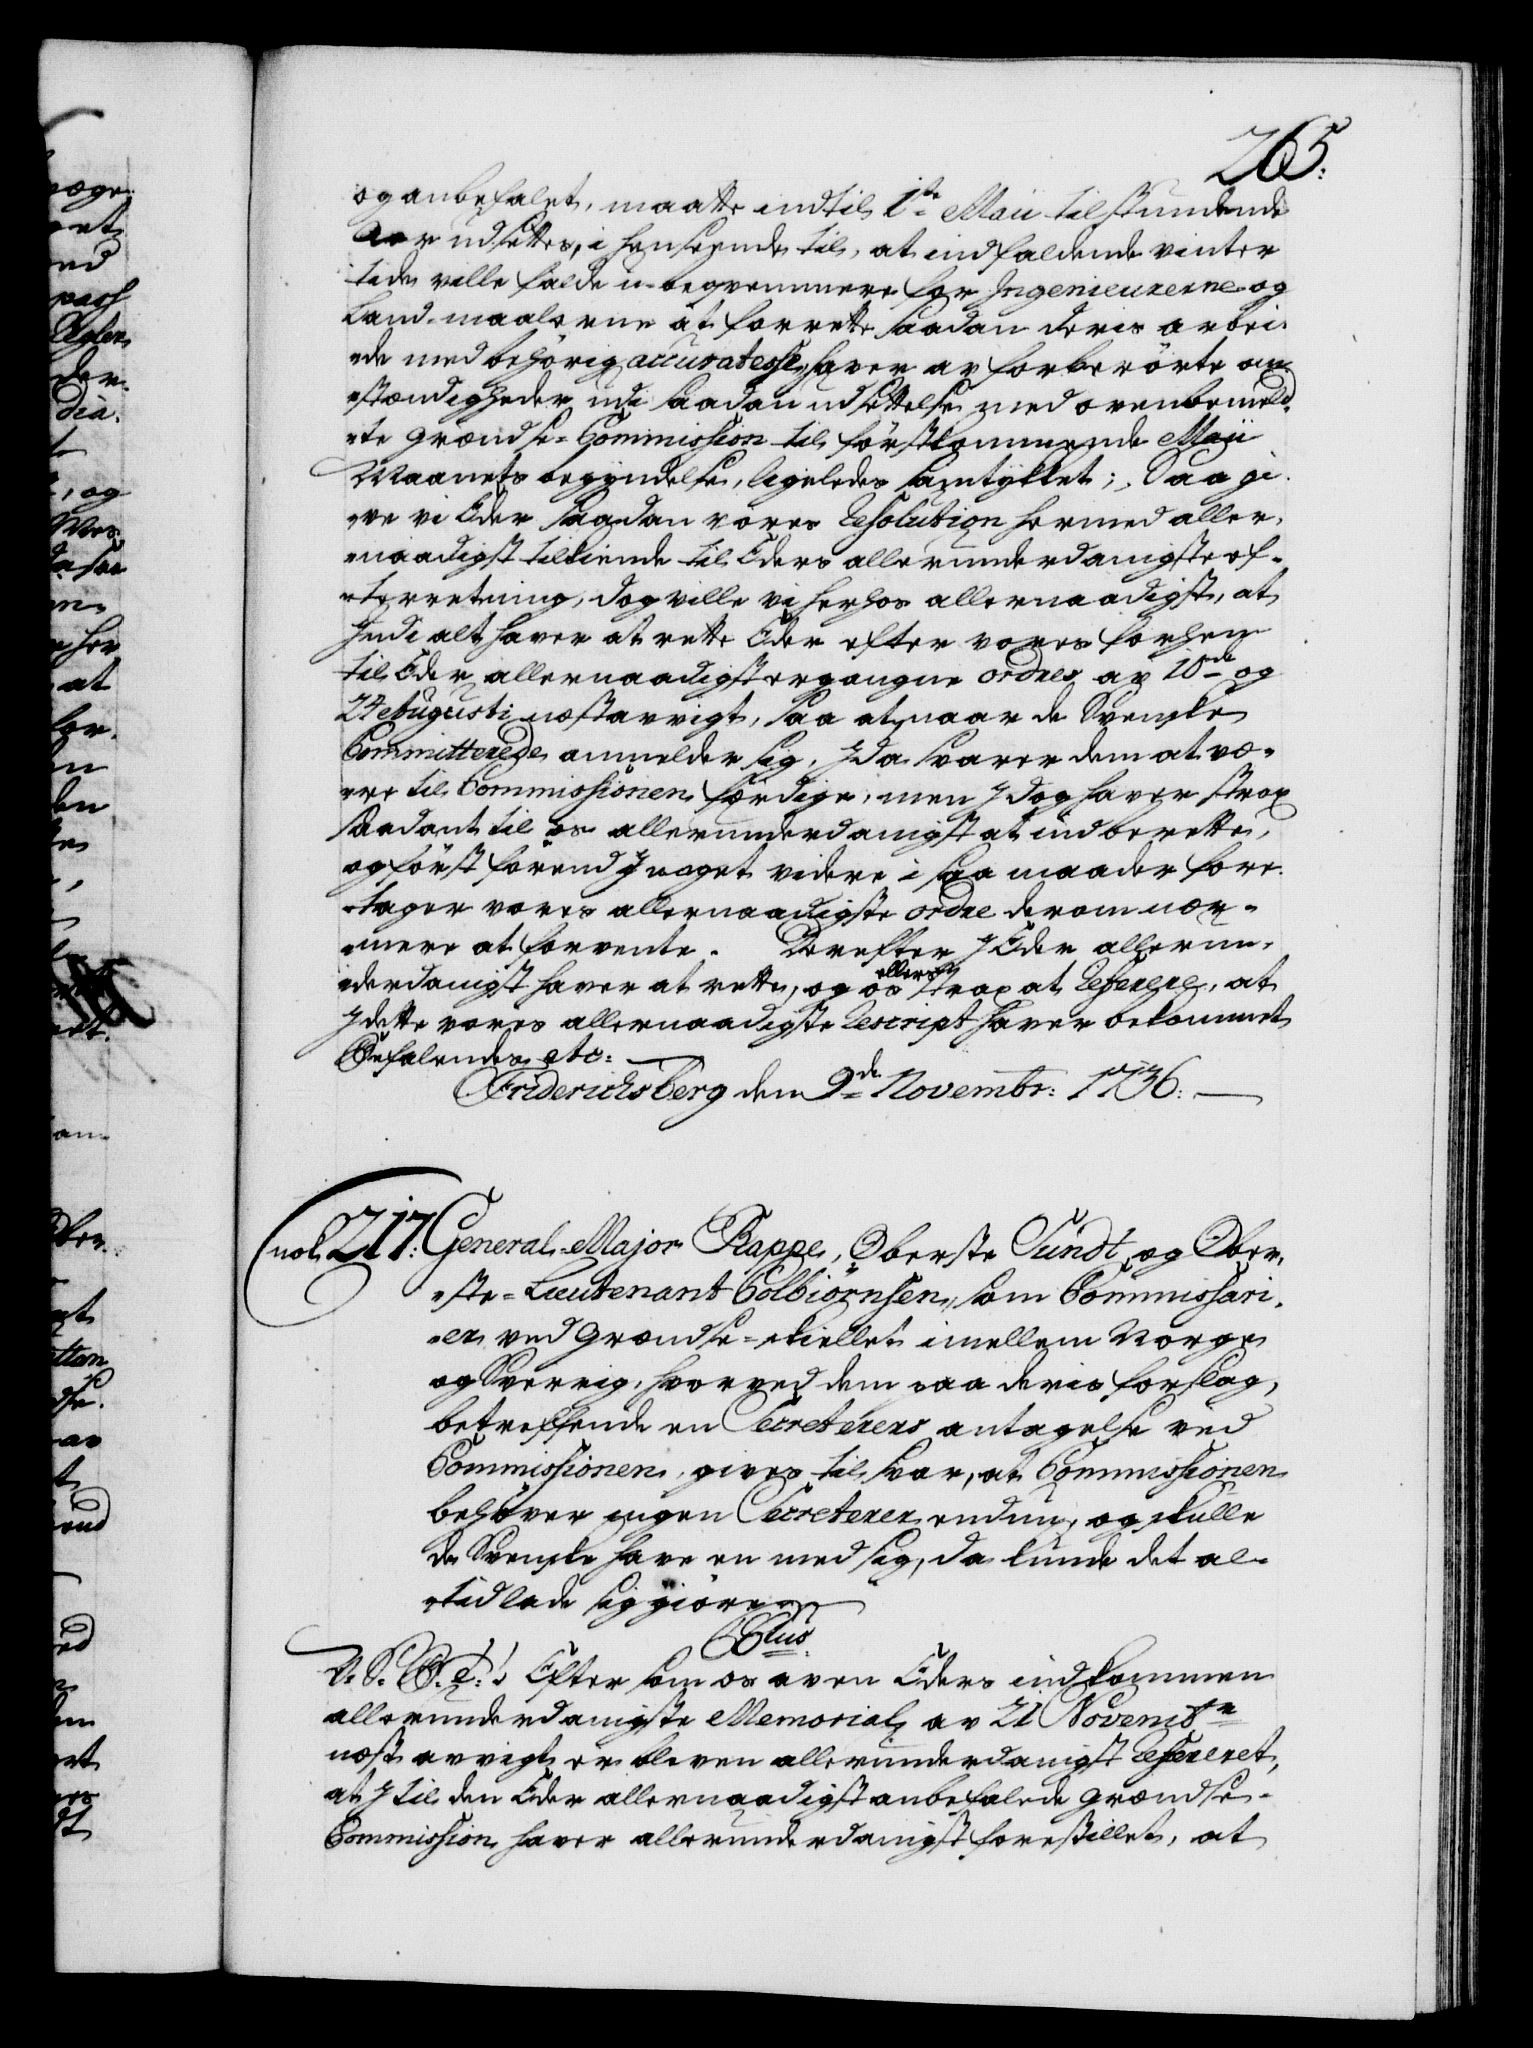 265.
og anbefalet, maatte indtil 1ste Maii tilstundende
Aar udsettes, i henseende til, at indfaldende vinter
tide ville falde u-beqvemmere for Ingenieurerne og
Land-maalerne at forrette saadan deris arbei-
de med behörig accuratesse, haver av forberörte om-
stændigheder udi saadan udsettelse med ovenbemeld-
te Grændse-Commission til förstkommende Maii
Maanets begyndelse, ligeledes samtykket; Saa gi-
ve vi Eder saadan vores Resolution hermed aller-
naadigst tilkiende til Eders allerunderdanigste ef-
terretning, dog ville vi herhos allernaadigst, at
I udi alt haver at rette Eder efter vores forhen
til Eder allernaadigst ergangne ordres av 10de og
24 Augusti næstavvigt, saa at naar de Svenske
Committerede anmelder sig, I da svarer dem at væ-
re til Commissionen færdige, men I dog haver strax
saadant til os allerunderdanigst at indberette,
og först forend I noget videre i saa maader fore-
tager vores allernaadigste ordre derom nær-
mere at forvente. Derefter I Eder allerun-
derdanigst haver at rette, og os ellers strax at Referere, at
I dette vores allernaadigste Rescript haver bekommet
Befalendes etc:
Friderichsberg den 9de Novembr: 1736.
No 217. General-Major Rappe, Oberste Tundt og Ober-
ste-Lieutenant Colbiörnsen, som Commissari-
er ved Grændse-skiellet imellem Norge
og Sverrig, hvorved dem paa deris forslag,
betreffende en Secreterers antagelse ved
Commissionen, gives til svar, at Commissionen
behöver ingen Secreterer endnu, og skulle
de Svenske have en med sig, da kunde det al-
tid lade sig giöre
V. S. G. T. Efter som os aven Eders indkommen
allerunderdanigste Memorial av 21 Novembr
næst avvigt er bleven allerunderdanigst Refereret,
at I til den Eder allernaadigst anbefalede Grændse-
Commission haver allerunderdanigst forestillet, at